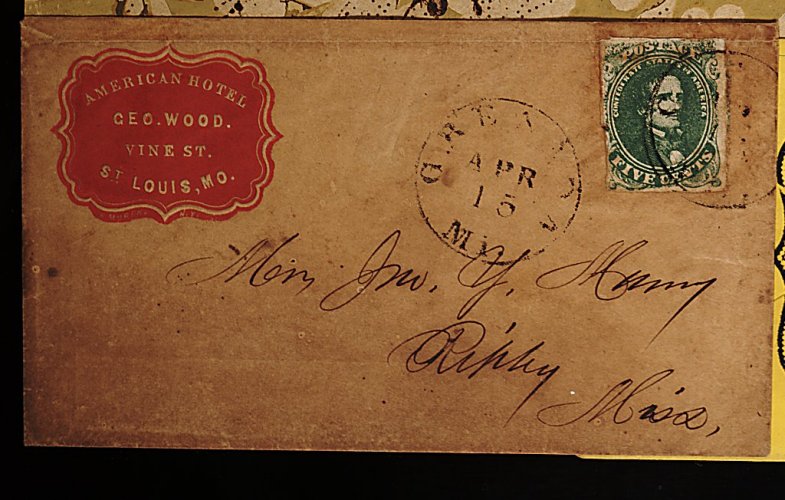 AMERICAN HOTEL
GEO. WOOD.
VINE ST.
ST. LOUIS, MO.
GRENADA
APR
15
MI
POSTAGE
CONFEDERATE STATES OF AMERICA
FIVE CENTS
Mrs Jno. Y. Murry
Ripley
Miss.